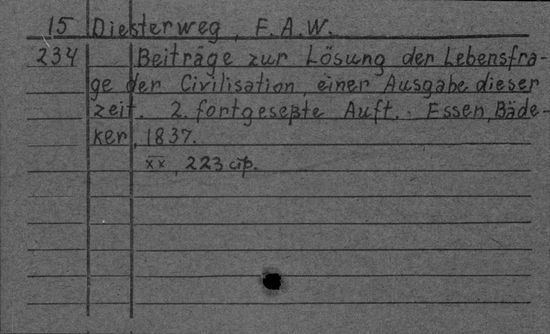 15 Diesterweg, F.A.W.
234 Beiträge zur Lösung der Lebensfra-
ge der Civilisation, einer Ausgabe dieser
zeit. 2. fortgeseßte Auft. Essen, Bäde-
ker, 1837.
xx, 223 cip.